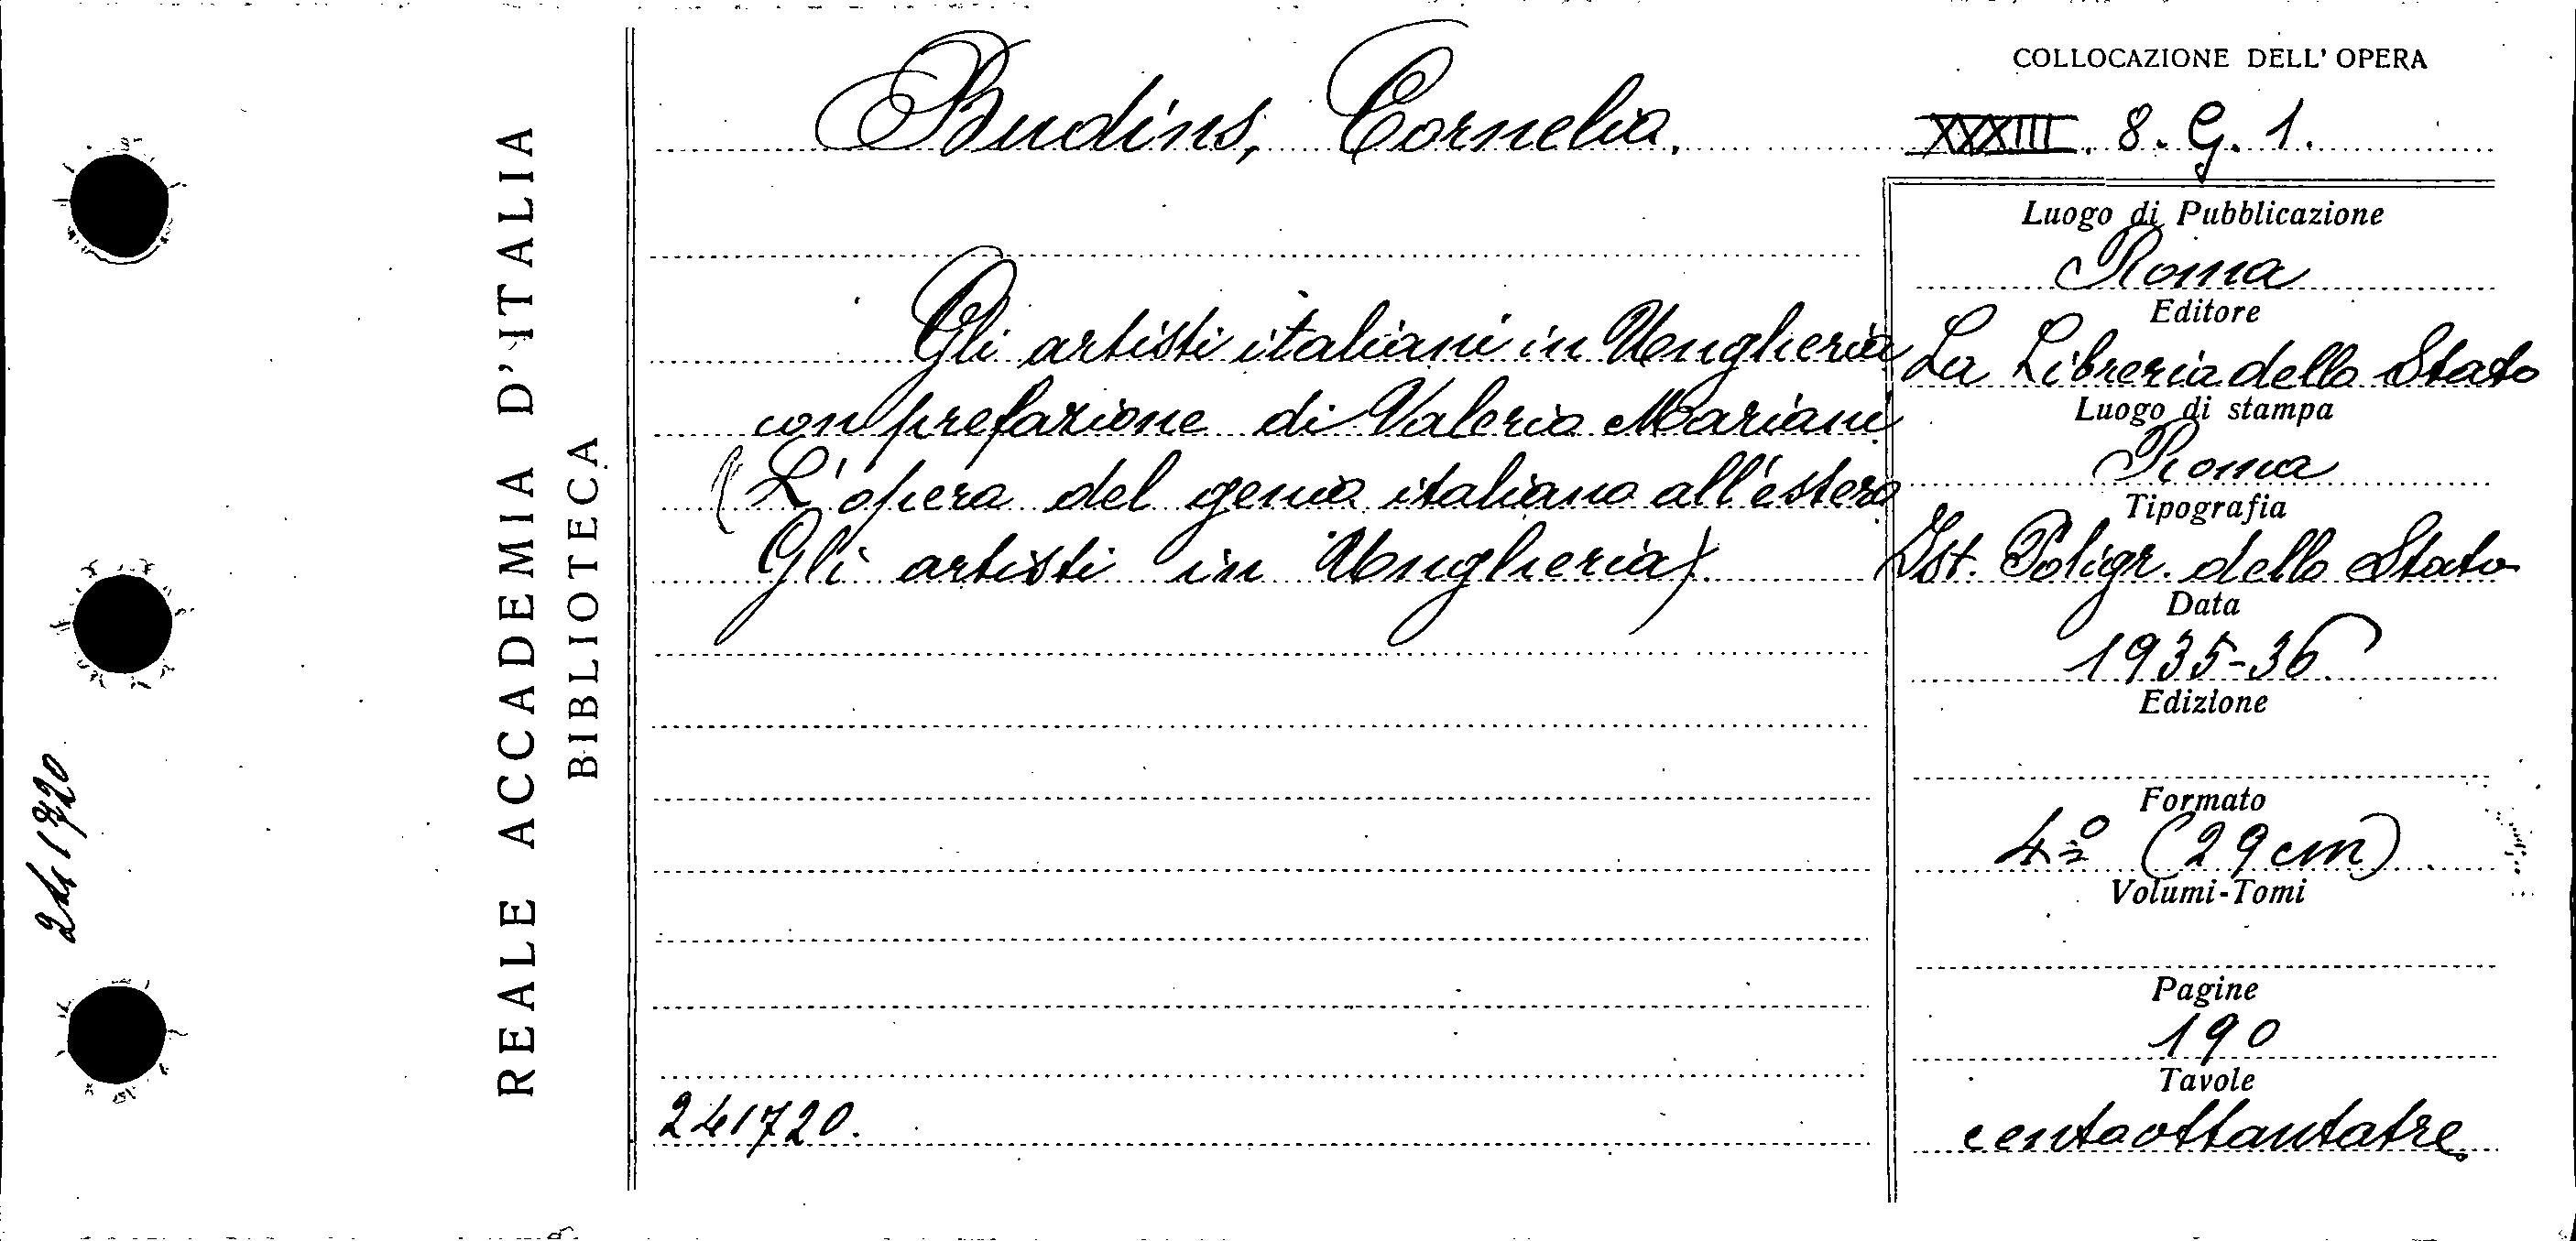 241720
REALE ACCADEMIA D'ITALIA
BIBLIOTECA
Budins, Cornelia.
Gli artisti italiani in Ungheria
con prefazione di Valerio Mariani
(L'opera del genio italiano all'estero
Gli artisti in Ungheria)
241720.
COLLOCAZIONE DELL' OPERA
XXXIII. 8. G. 1.
Luogo di Pubblicazione
Roma
Editore
La Libreria dello Stato
Luogo di stampa
Roma
Tipografia
Ist. Poligr. dello Stato
Data
1935-36
Edizione
Formato
4º (29 cm)
Volumi-Tomi
Pagine
190
Tavole
centoottantatre